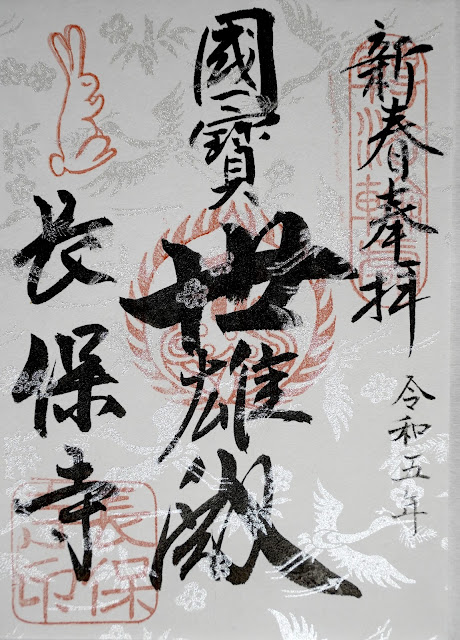 新春奉拝
令和五年
國寶
世雄殿
長保寺
長保
寺印